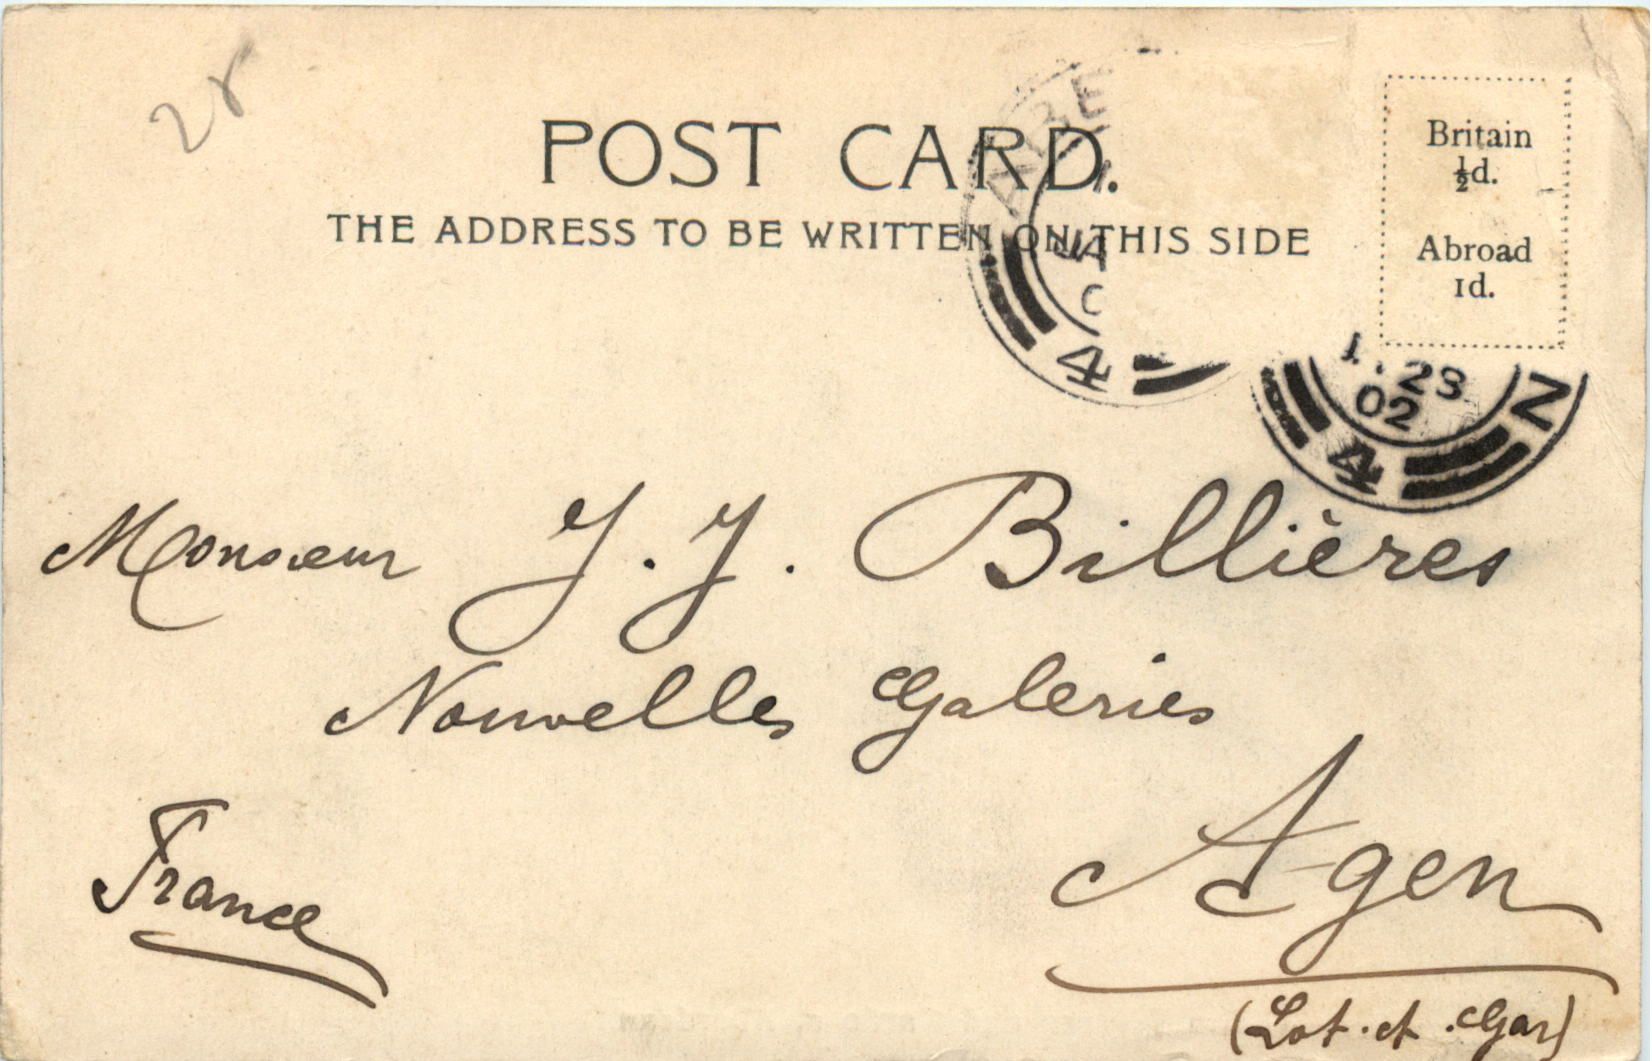 28
POST CARD.
THE ADDRESS TO BE WRITTEN ON THIS SIDE
Britain
½d.
Abroad
1d.
4
23
02
4
N
Monsieur J. J. Billières
Nouvelles Galeries
Agen
France
(Lot. et. Gar)